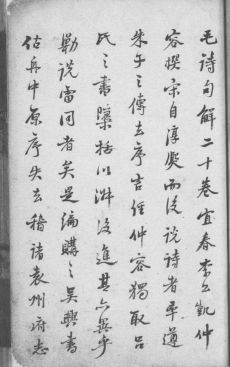 毛詩句解二十卷宜春李公凱仲
容撰宋自淳熙而後說詩者率遵
朱子之傳去序言經仲容獨取呂
氏之書檃括以淑後進其亦異乎
勦說雷同者矣是編購之吳興書
估卷中原序失去稽諸袁州府志